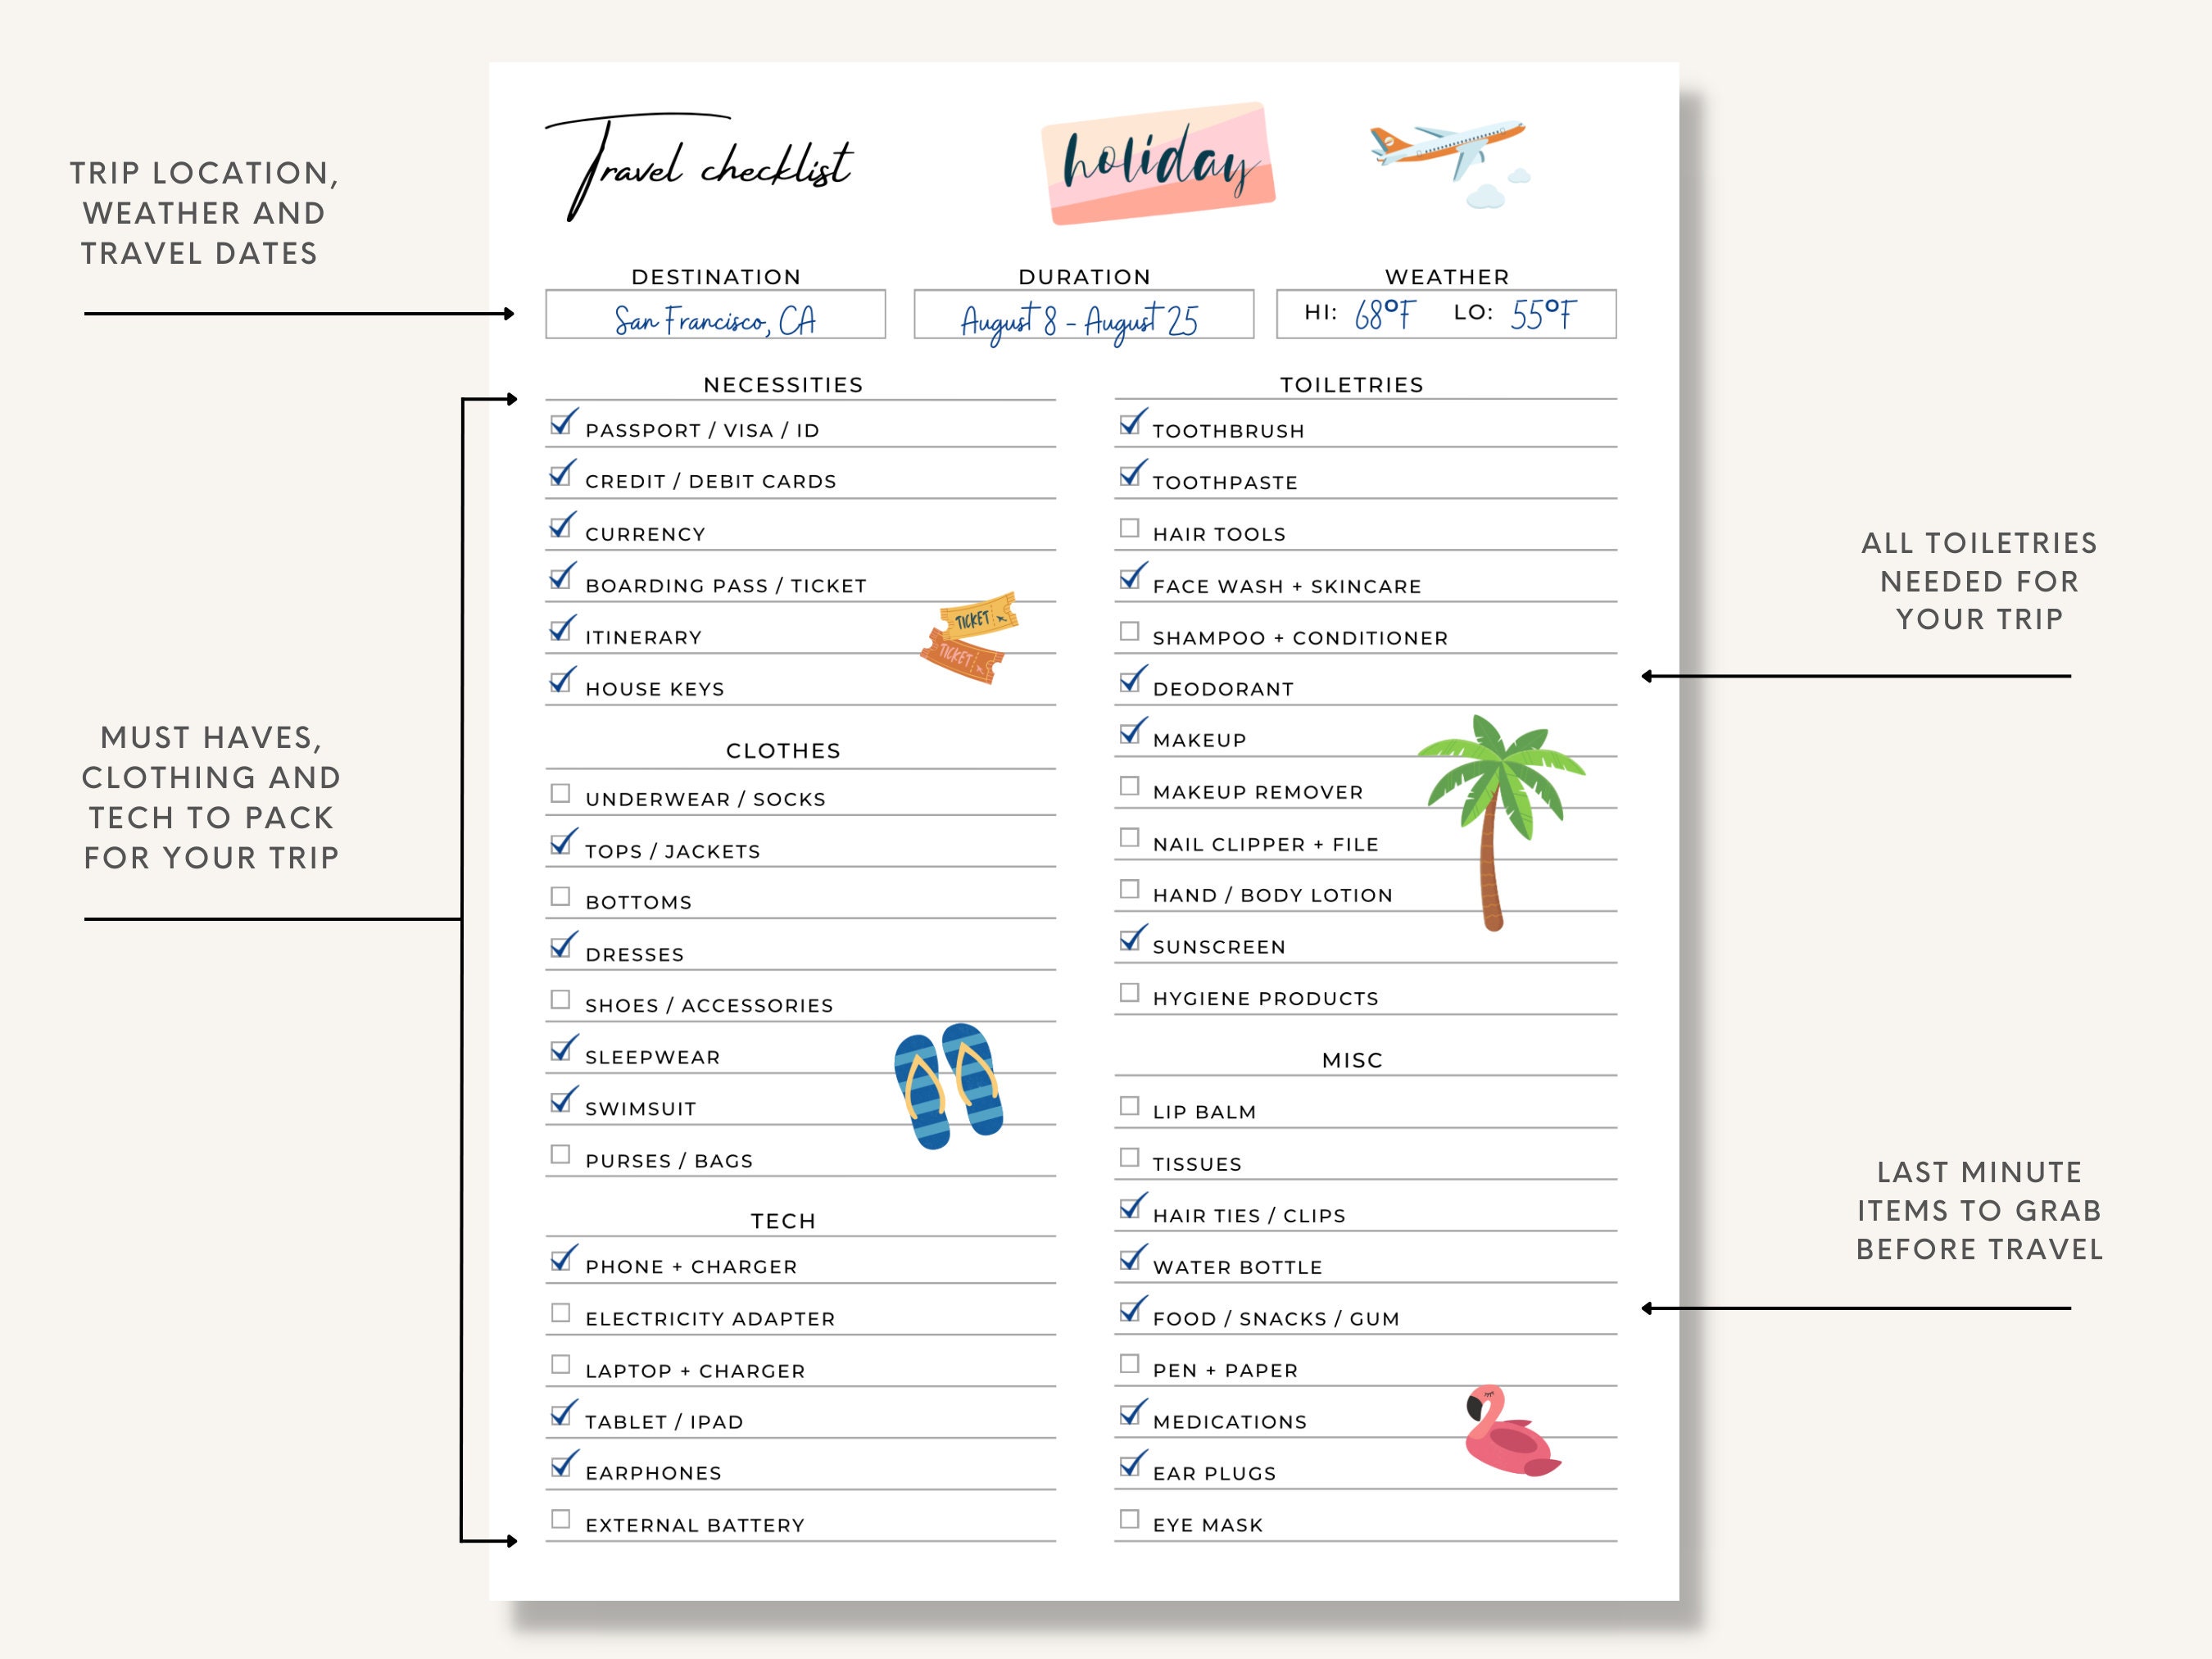 TRIP LOCATION,
WEATHER AND
TRAVEL DATES
MUST HAVES,
CLOTHING AND
TECH TO PACK
FOR YOUR TRIP
Travel checklist
holiday
DESTINATION
San Francisco, CA
DURATION
August 8 - August 25
WEATHER
HI: 68°F LO: 55°F
NECESSITIES
PASSPORT / VISA / ID
CREDIT / DEBIT CARDS
CURRENCY
BOARDING PASS / TICKET
ITINERARY
HOUSE KEYS
TICKET
TICKET
CLOTHES
UNDERWEAR / SOCKS
TOPS / JACKETS
BOTTOMS
DRESSES
SHOES / ACCESSORIES
SLEEPWEAR
SWIMSUIT
PURSES / BAGS
TECH
PHONE + CHARGER
ELECTRICITY ADAPTER
LAPTOP + CHARGER
TABLET / IPAD
EARPHONES
EXTERNAL BATTERY
TOILETRIES
TOOTHBRUSH
TOOTHPASTE
HAIR TOOLS
FACE WASH + SKINCARE
SHAMPOO + CONDITIONER
DEODORANT
MAKEUP
MAKEUP REMOVER
NAIL CLIPPER + FILE
HAND / BODY LOTION
SUNSCREEN
HYGIENE PRODUCTS
MISC
LIP BALM
TISSUES
HAIR TIES / CLIPS
WATER BOTTLE
FOOD / SNACKS / GUM
PEN + PAPER
MEDICATIONS
EAR PLUGS
EYE MASK
ALL TOILETRIES
NEEDED FOR
YOUR TRIP
LAST MINUTE
ITEMS TO GRAB
BEFORE TRAVEL